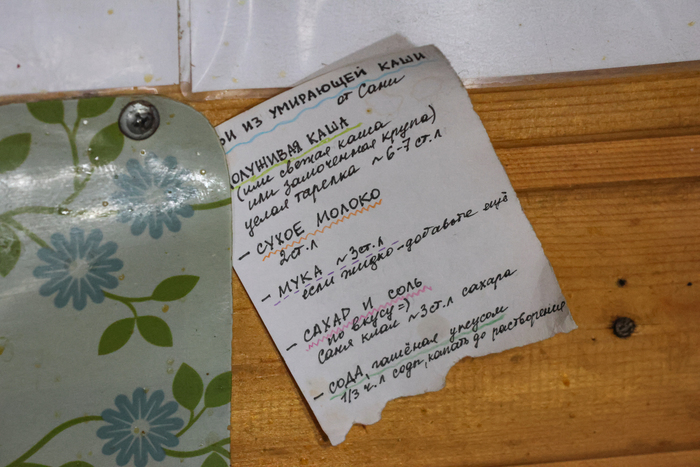 РИ ИЗ УМИРАЮЩЕЙ КАШИ
от Сани
ОЛУЖИВАЯ КАША
(или свежая каша
или замоченная крупа)
целая тарелка ~ 6-7 ст.л
- СУХОЕ МОЛОКО
2 ст.л
- МУКА ~ 3 ст.л
если жидко - добавьте ещё
- САХАР И СОЛЬ
по вкусу =)
Саня клал ~ 3 ст.л сахара
- СОДА, гашёная уксусом
1/3 ч.л соды, капать до растворения